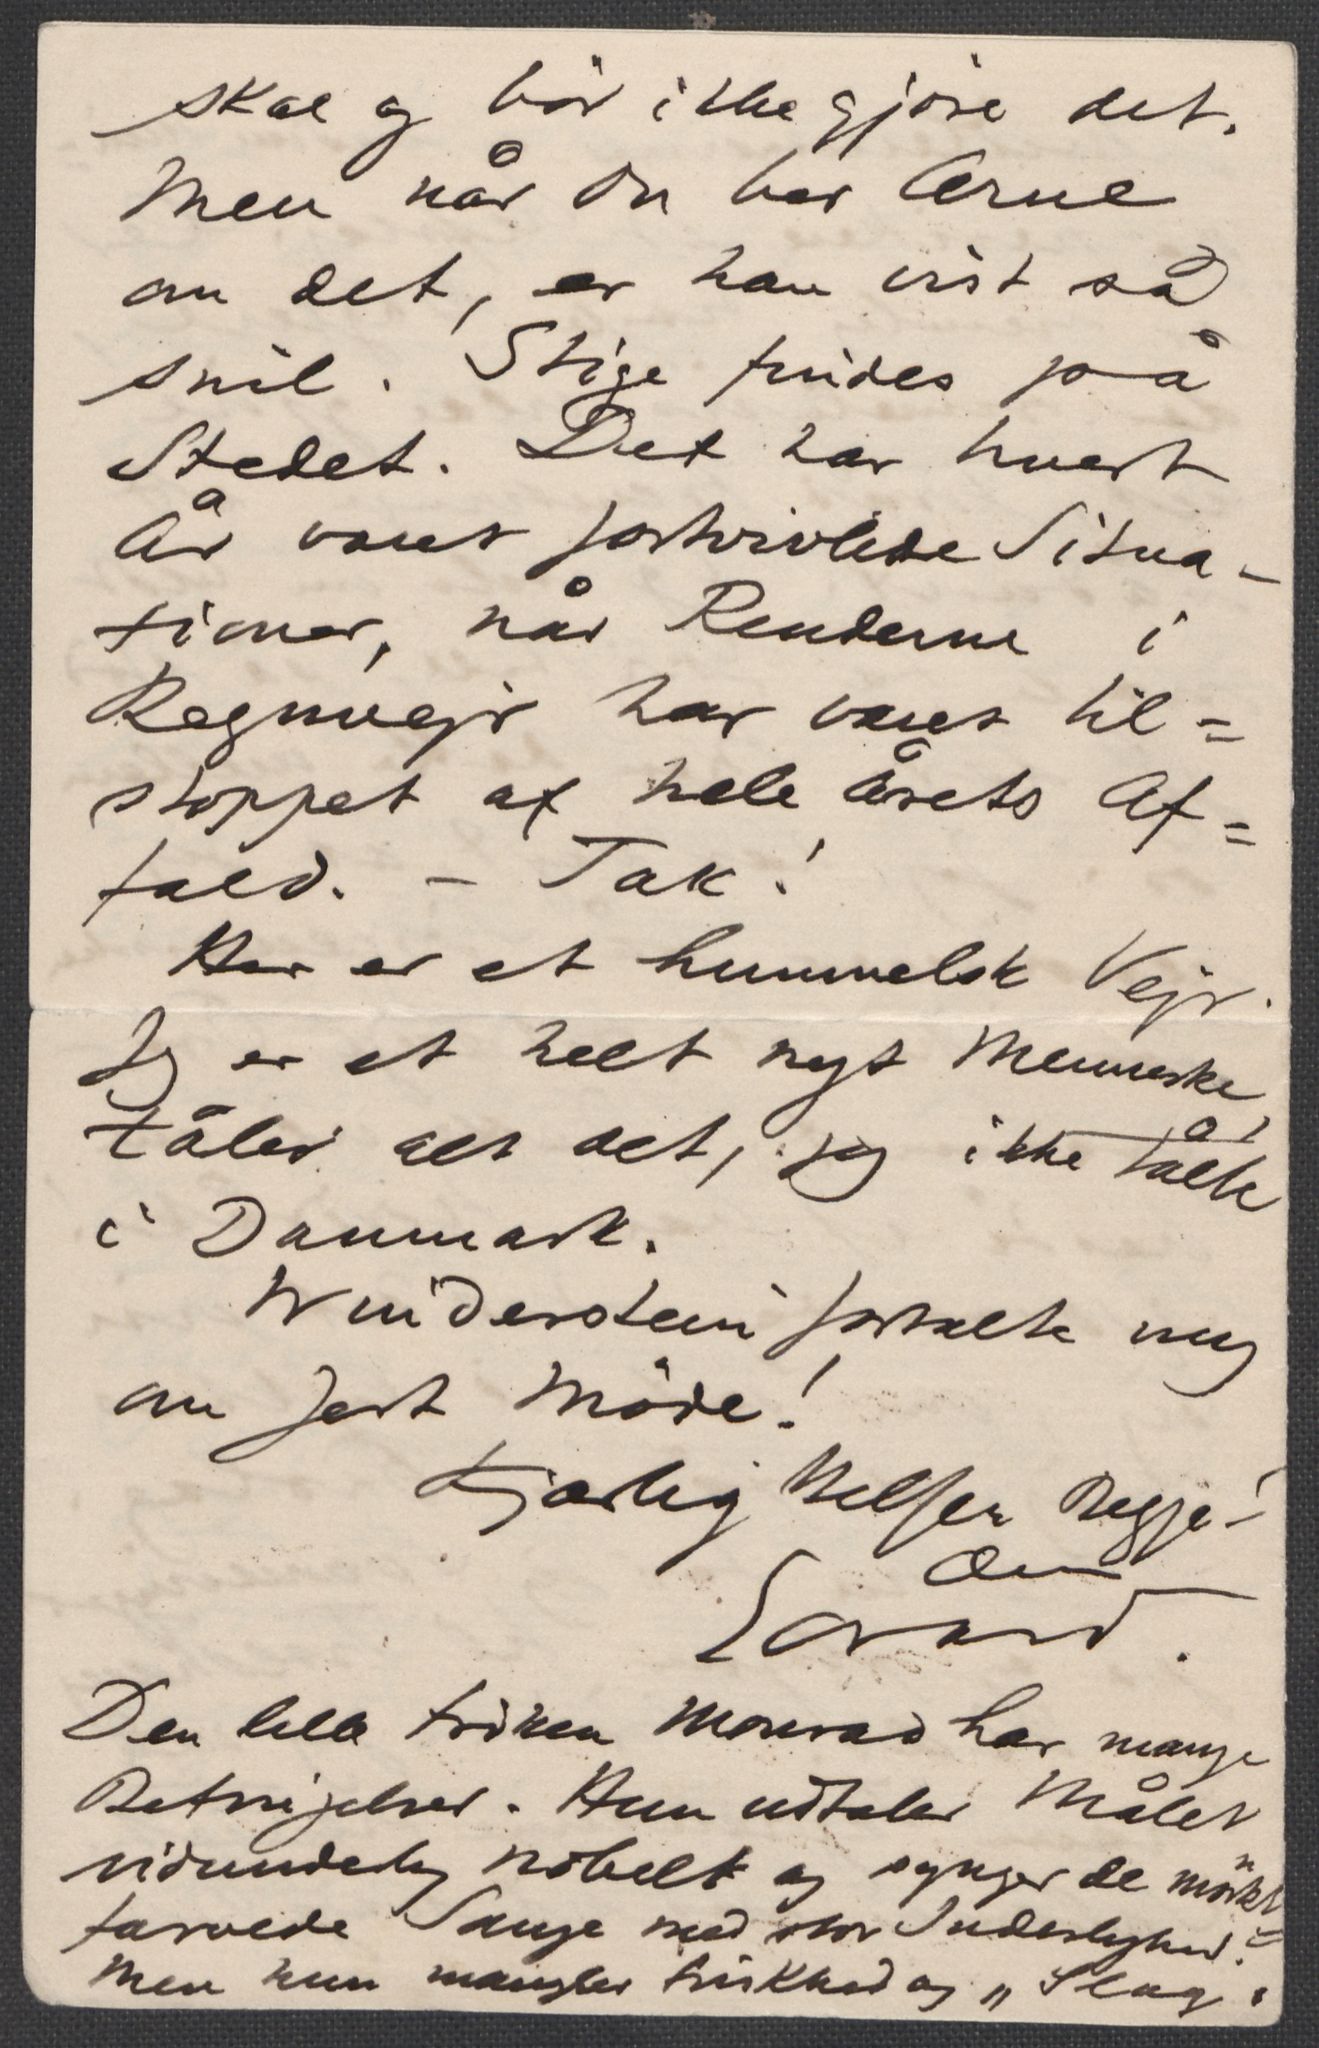 skal og bör ikke gjöre det.
Men når Du ber Arne
om det, er han vist så
snil. Stige findes på
Stedet. Det har hvert
År været fortvivlede Situa-
tioner, når Renderne i
Regnvejr har været til=
stoppet af hele årets Af=
fald. – Tak!
Her er et himmelsk Vejr.
Jeg er et helt nyt Menneske,
tåler alt det, jeg ikke tålte
i Danmark.
Winderstein fortalte mig
om Jert Möde!
Kjærlig Hilsen Begge!
Din
Edvard.
Den lille Fröken Monrad har mange
Betingelser. Hun udtaler Målet
vidunderlig nobelt og synger de mörkt=
farvede Sange med stor Inderlighed.
Men hun mangler Friskhed og „Slag".